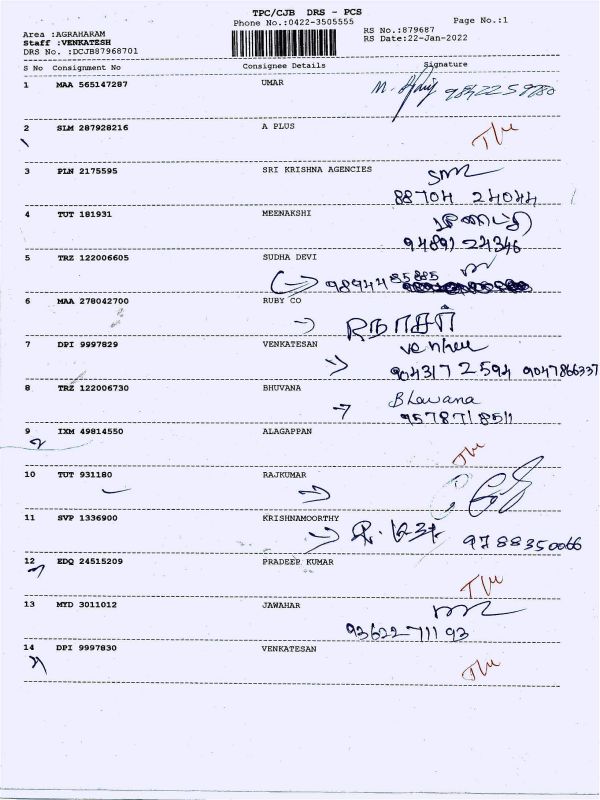 TPC/CJB DRS - PCS
Phone No.:0422-3505555
Page No.:1
Area :AGRAHARAM
RS No.:879687
Staff :VENKATESH
RS Date:22-Jan-2022
DRS No. :DCJB87968701
S No Consignment No Consignee Details Signature
1 MAA 565147287 UMAR
2 SLM 287928216 A PLUS
3 PLN 2175595 SRI KRISHNA AGENCIES
88704 24044
4 TUT 181931 MEENAKSHI
94891 24346
5 TRZ 122006605 SUDHA DEVI
9894485885
6 MAA 278042700 RUBY CO
7 DPI 9997829 VENKATESAN
9043172594 9047866337
8 TRZ 122006730 BHUVANA
Bhuvana
9578718511
9 IXM 49814550 ALAGAPPAN
10 TUT 931180 RAJKUMAR
11 SVP 1336900 KRISHNAMOORTHY
9788350066
12 EDQ 24515209 PRADEEP KUMAR
13 MYD 3011012 JAWAHAR
9362271193
14 DPI 9997830 VENKATESAN